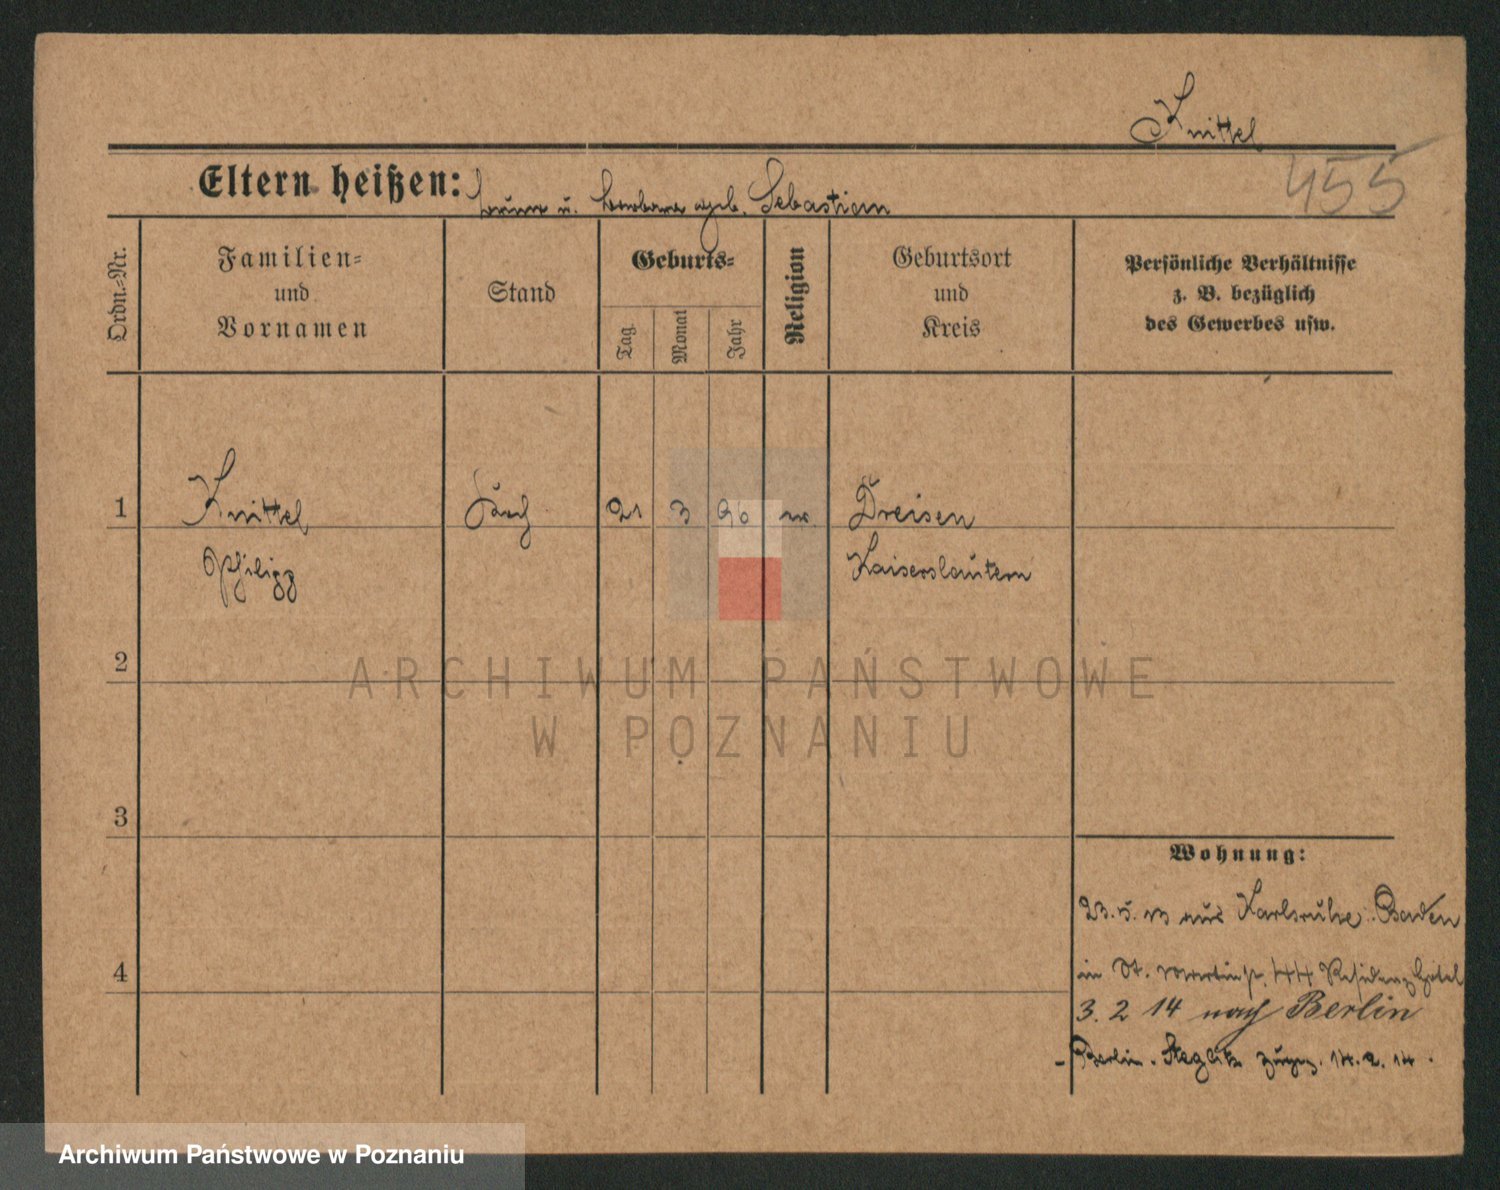 Knittel
455
Eltern heißen: u. Barbara geb. Sebastian
Ordn.-Nr.
Familien-
und
Vornamen
Stand
Geburts-
Tag.
Monat
Jahr
Religion
Geburtsort
und
Kreis
Persönliche Verhältnisse
z. B. bezüglich
des Gewerbes usw.
1
Knittel
21
3
96
Dreisen
Philipp
Kaiserslautern
2
ARCHIWUM PAŃSTWOWE
W POZNANIU
3
Wohnung:
23. 5. 13 aus Karlsruhe. Baden
in St. Martinstr. 44 Residenz Hotel
4
3. 2 14 nach Berlin
- Berlin - Steglitz zugez. 14. 2. 14.
Archiwum Państwowe w Poznaniu